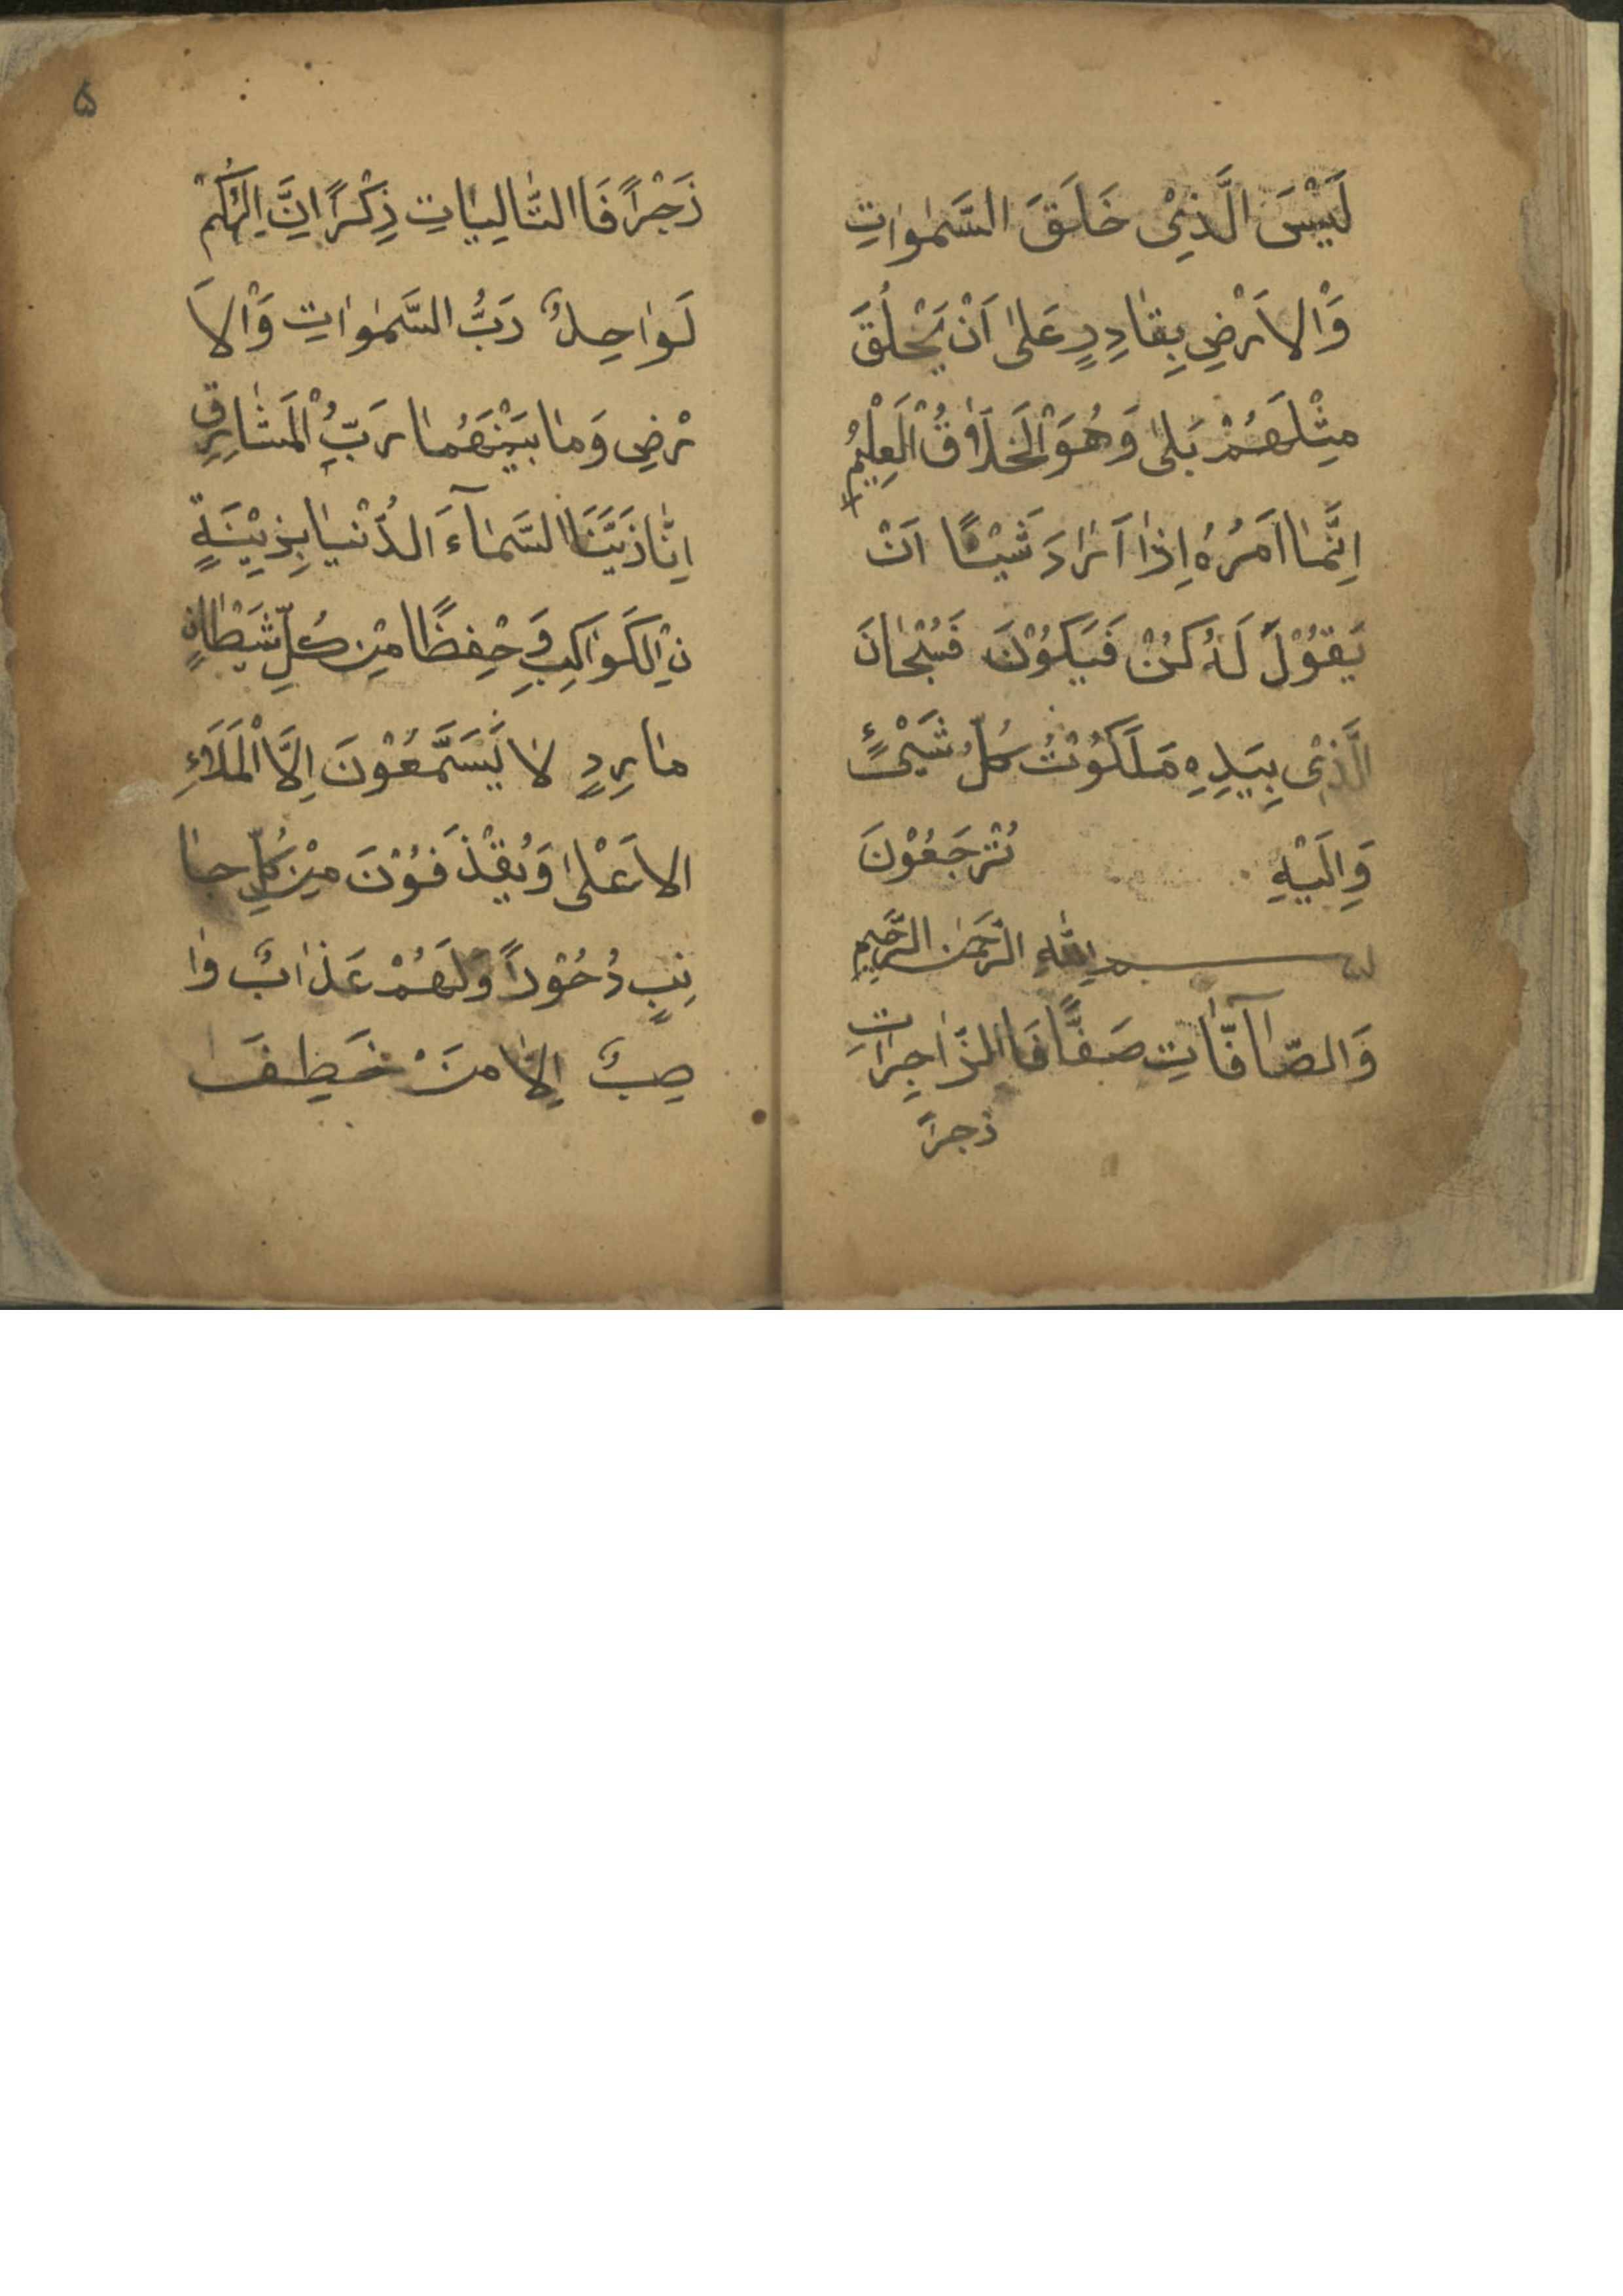 لَيْسَ الَّذِيْ خَلَقَ السَّمٰوٰاتِ
وَالْاَرْضِ بِقٰادِرٍ عَلىٰ اَنْ يَخْلُقَ
مِثْلَهُمْ بَلىٰ وَهُوَ الْخَلَّاقُ الْعَلِيْمُ
اِنَّمٰا اَمْرُهُ اِذٰا اَرٰادَ شَيْئًا اَنْ
يَقُوْلَ لَهُ كُنْ فَيَكُوْنَ فَسُبْحٰانَ
الَّذِيْ بِيَدِهِ مَلَكُوْتُ كُلُّ شَيْئٍ
وَاِلَيْهِ تُرْجَعُوْنَ
بسم اللهِ الرَّحْمٰنِ الرَّحِيمِ
وَالصّٰآفّٰاتِ صَفًّا فَاالزّٰاجِرٰاتِ
زجراً
زَجْراً فَاالتّٰالِيٰاتِ ذِكْرًا اِنَّ اِلٰهَكُمْ
لَوٰاحِدٌ رَبُّ السَّمٰوٰاتِ وَالْاَ
رْضِ وَمٰا بَيْنَهُمٰا رَبُّ الْمَشٰارِقِ
اِنّٰا زَيَّنَا السَّمٰآءَ الدُّنْيٰا بِزِيْنَةٍ
نِ الْكَوٰاكِبِ وَحِفْظًا مِنْ كُلِّ شَيْطٰانٍ
مٰارِدٍ لاٰ يَسَّمَّعُوْنَ اِلَّا الْمَلَاءِ
الاَعْلىٰ وَيُقْذَفُوْنَ مِنْ كُلِّ جٰا
نِبٍ دُحُوْراً وَلَهُمْ عَذٰابٌ وٰا
صِبٌ اِلاّٰ مَنْ خَطِفَ
۵